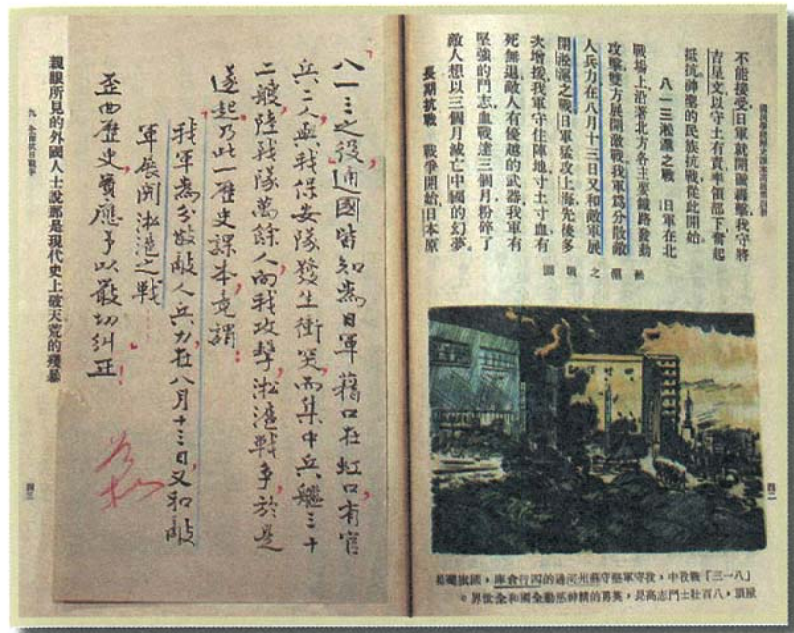 不能接受日軍就開礮轟擊我守將
吉星文以守土有責率領部下奮起
抵抗神聖的民族抗戰從此開始。
八一三淞滬之戰 日軍在北
戰場上沿著北方各主要鐵路發動
攻擊雙方展開激戰我軍爲分散敵
人兵力在八月十三日又和敵軍展
開淞滬之戰日軍猛攻上海先後多
次增援我軍守住陣地寸土寸血有
死無退敵人有優越的武器我軍有
堅強的鬥志血戰達三個月粉碎了
敵人想以三個月滅亡中國的幻夢。
長期抗戰 戰爭開始日本原
滬之戰圖
「八一三」戰役中，我守軍堅守蘇州河邊的四行倉庫，國旗
屋頂，八百壯士鬥志高昂，英勇的精神感動全國和全世界。
四二
八一三之役，通國皆知爲日軍藉口在虹口有官
兵二人與我保安隊發生衝突，而集中兵艦三十
二艘陸戰隊萬餘人向我攻擊，淞滬戰爭於是
遂起，乃此一歷史課本竟謂：
我軍爲分散敵人兵力，在八月十三日又和敵
軍展開淞滬之戰
歪曲歷史，實應予以嚴切糾正！
親眼所見的外國人士說那是現代史上破天荒的殘暴
九 全面抗日戰爭
四三